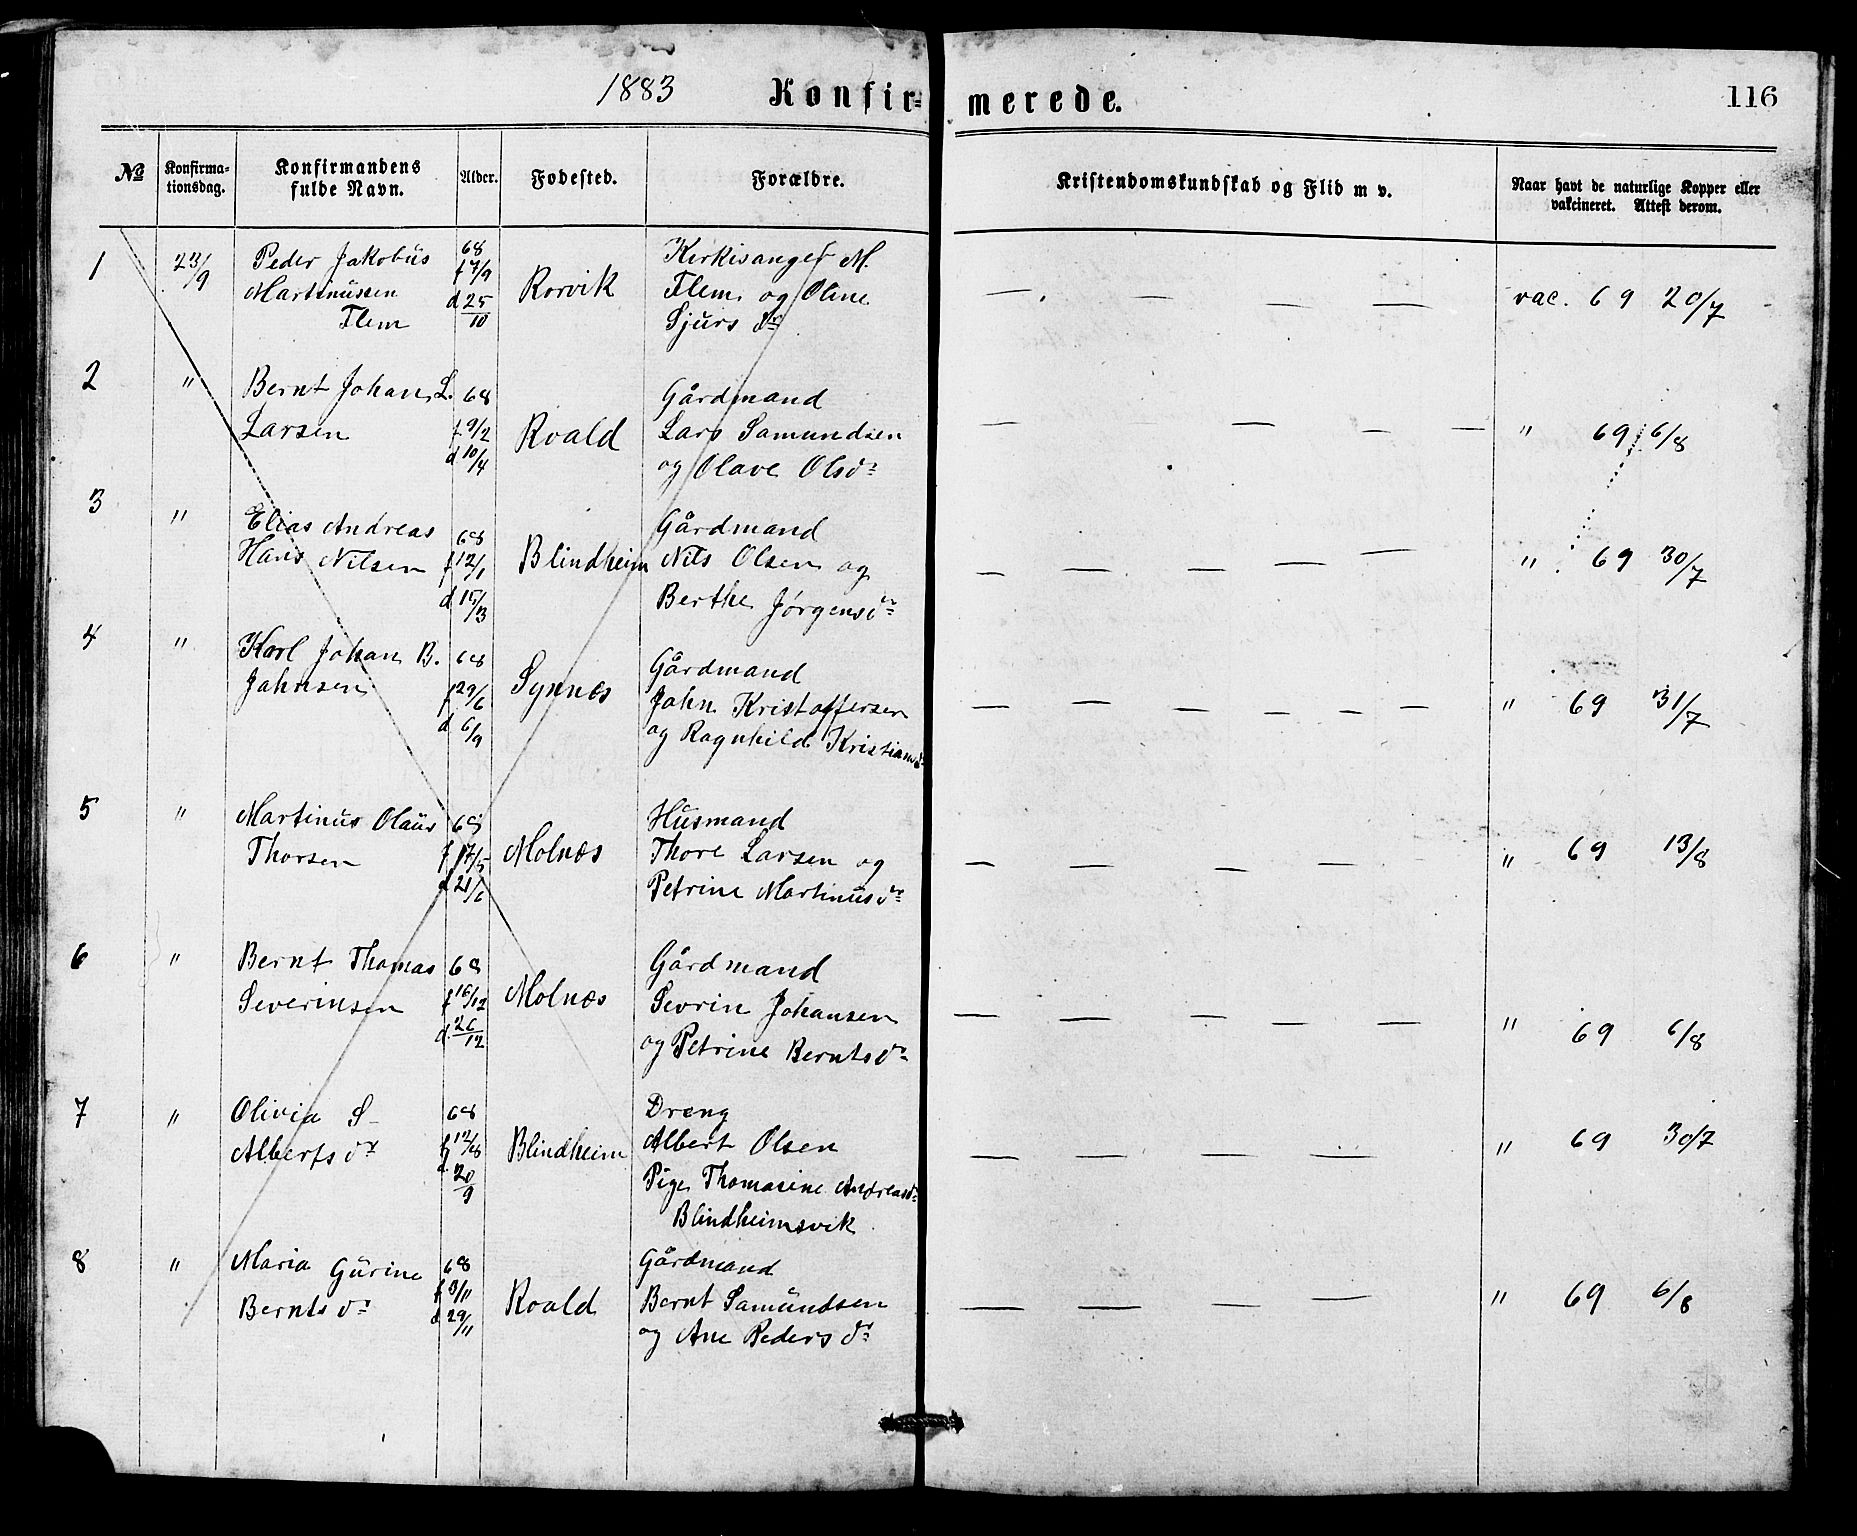 1883 Konfir- merede. 116
№ Konfirma-tionsdag. Konfirmandens fulde Navn. Alder. Fødested. Forældre. Kristendomskundskab og Flid m v. Naar havt de naturlige Kopper eller vakcineret. Attest derom.
1 23/9 Peder Jakobus 68 Kirkisanger M.
Martinussen f 7/9 Rorvik Flem og Oline vac. 69 20/7
Flem d 25/10 Sjurs dr
2 " Bernt Johan L. 68 Gårdmand
Larsen f 9/2 Roald Lars Samundsen " 69 6/8
d 10/4 og Olave Olsdr
3 " Elias Andreas 68 Gårdmand
Hans Nilsen f 12/1 Blindheim Nils Olsen og " 69 30/7
d 15/3 Berthe Jørgensdr
4 " Karl Johan B. 68 Gårdmand
Jahnsen f 29/6 Synnes Jahn Kristoffersen " 69 31/7
d 6/9 og Ragnhild Kristiansdr
5 " Martinus Olaus 68 Husmand
Thorsen f 17/5 Molnes Thore Larsen og " 69 13/8
d 21/6 Petrine Martinusdr
6 " Bernt Thomas 68 Gårdmand
Severinsen f 16/12 Molnes Sevrin Johansen " 69 6/8
d. 26/12 og Petrine Berntsdr
7 " Olivia S 68 Dreng
Alberts dr f 12/8 Blindheim Albert Olsen " 69 30/7
d 20/9 Pige Thomasine Andreasdr
Blindheimsvik
8 " Maria Gurine 68 Gårdmand
Bernts dr f 3/11 Roald Bernt Samundsen " 69 6/8
d 29/11 og Ane Peders dr